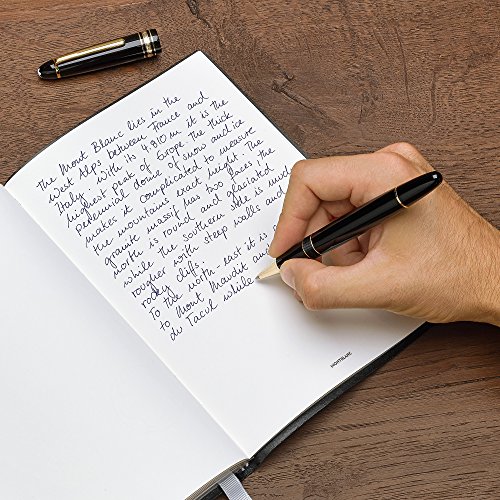 The Mont Blanc lies in the
West Alps between France and
Italy. With its 4,810 m it is the
highest peak of Europe. The thick
perennial dome of snow and ice
makes it complicated to measure
the mountains exact height. The
granite massif has two faces: the
north is round and glaciated
while the southern side is much
rougher with steep walls and
rocky cliffs.
To the north-east it is
to Mont Maudit an
du Tacul while
MONTBLANC